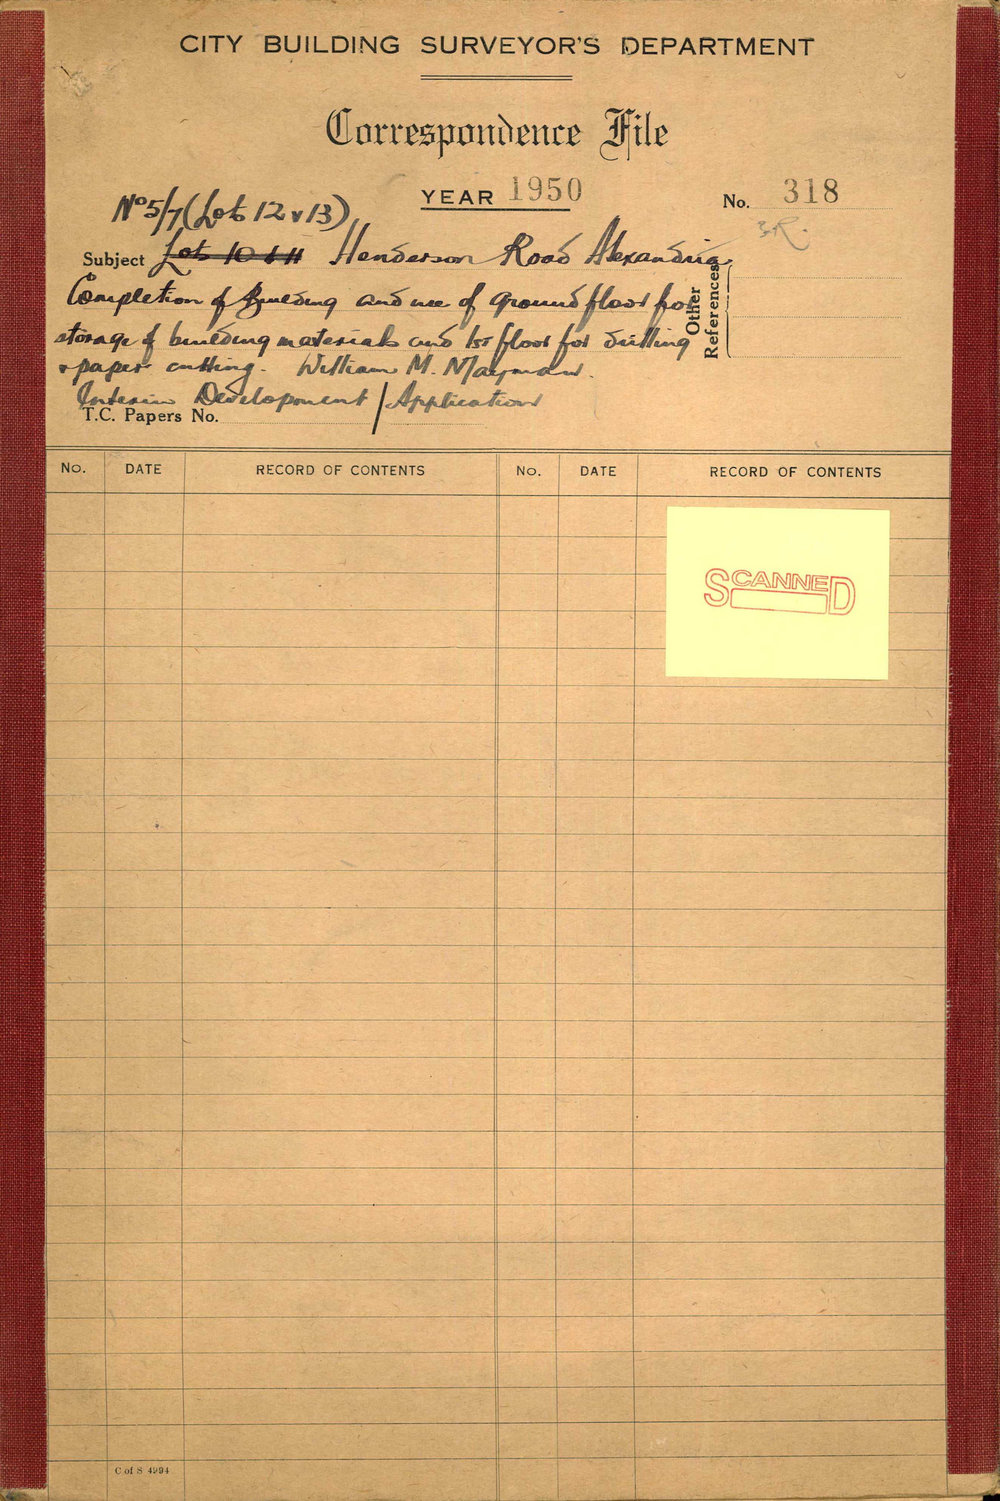 CITY BUILDING SURVEYOR'S DEPARTMENT
Correspondence File
YEAR 1950
No. 318
No 5/7 (Lots 12 & 13)
Subject Lots 10 & 11 Henderson Road Alexandria
Completion of Building and use of ground floor for
storage of building materials and 1st floor for
& paper cutting. William M. Mayman.
Interim Development / Application
Other References
T.C. Papers No.
No. DATE RECORD OF CONTENTS No. DATE RECORD OF CONTENTS
SCANNED
C of S 4994